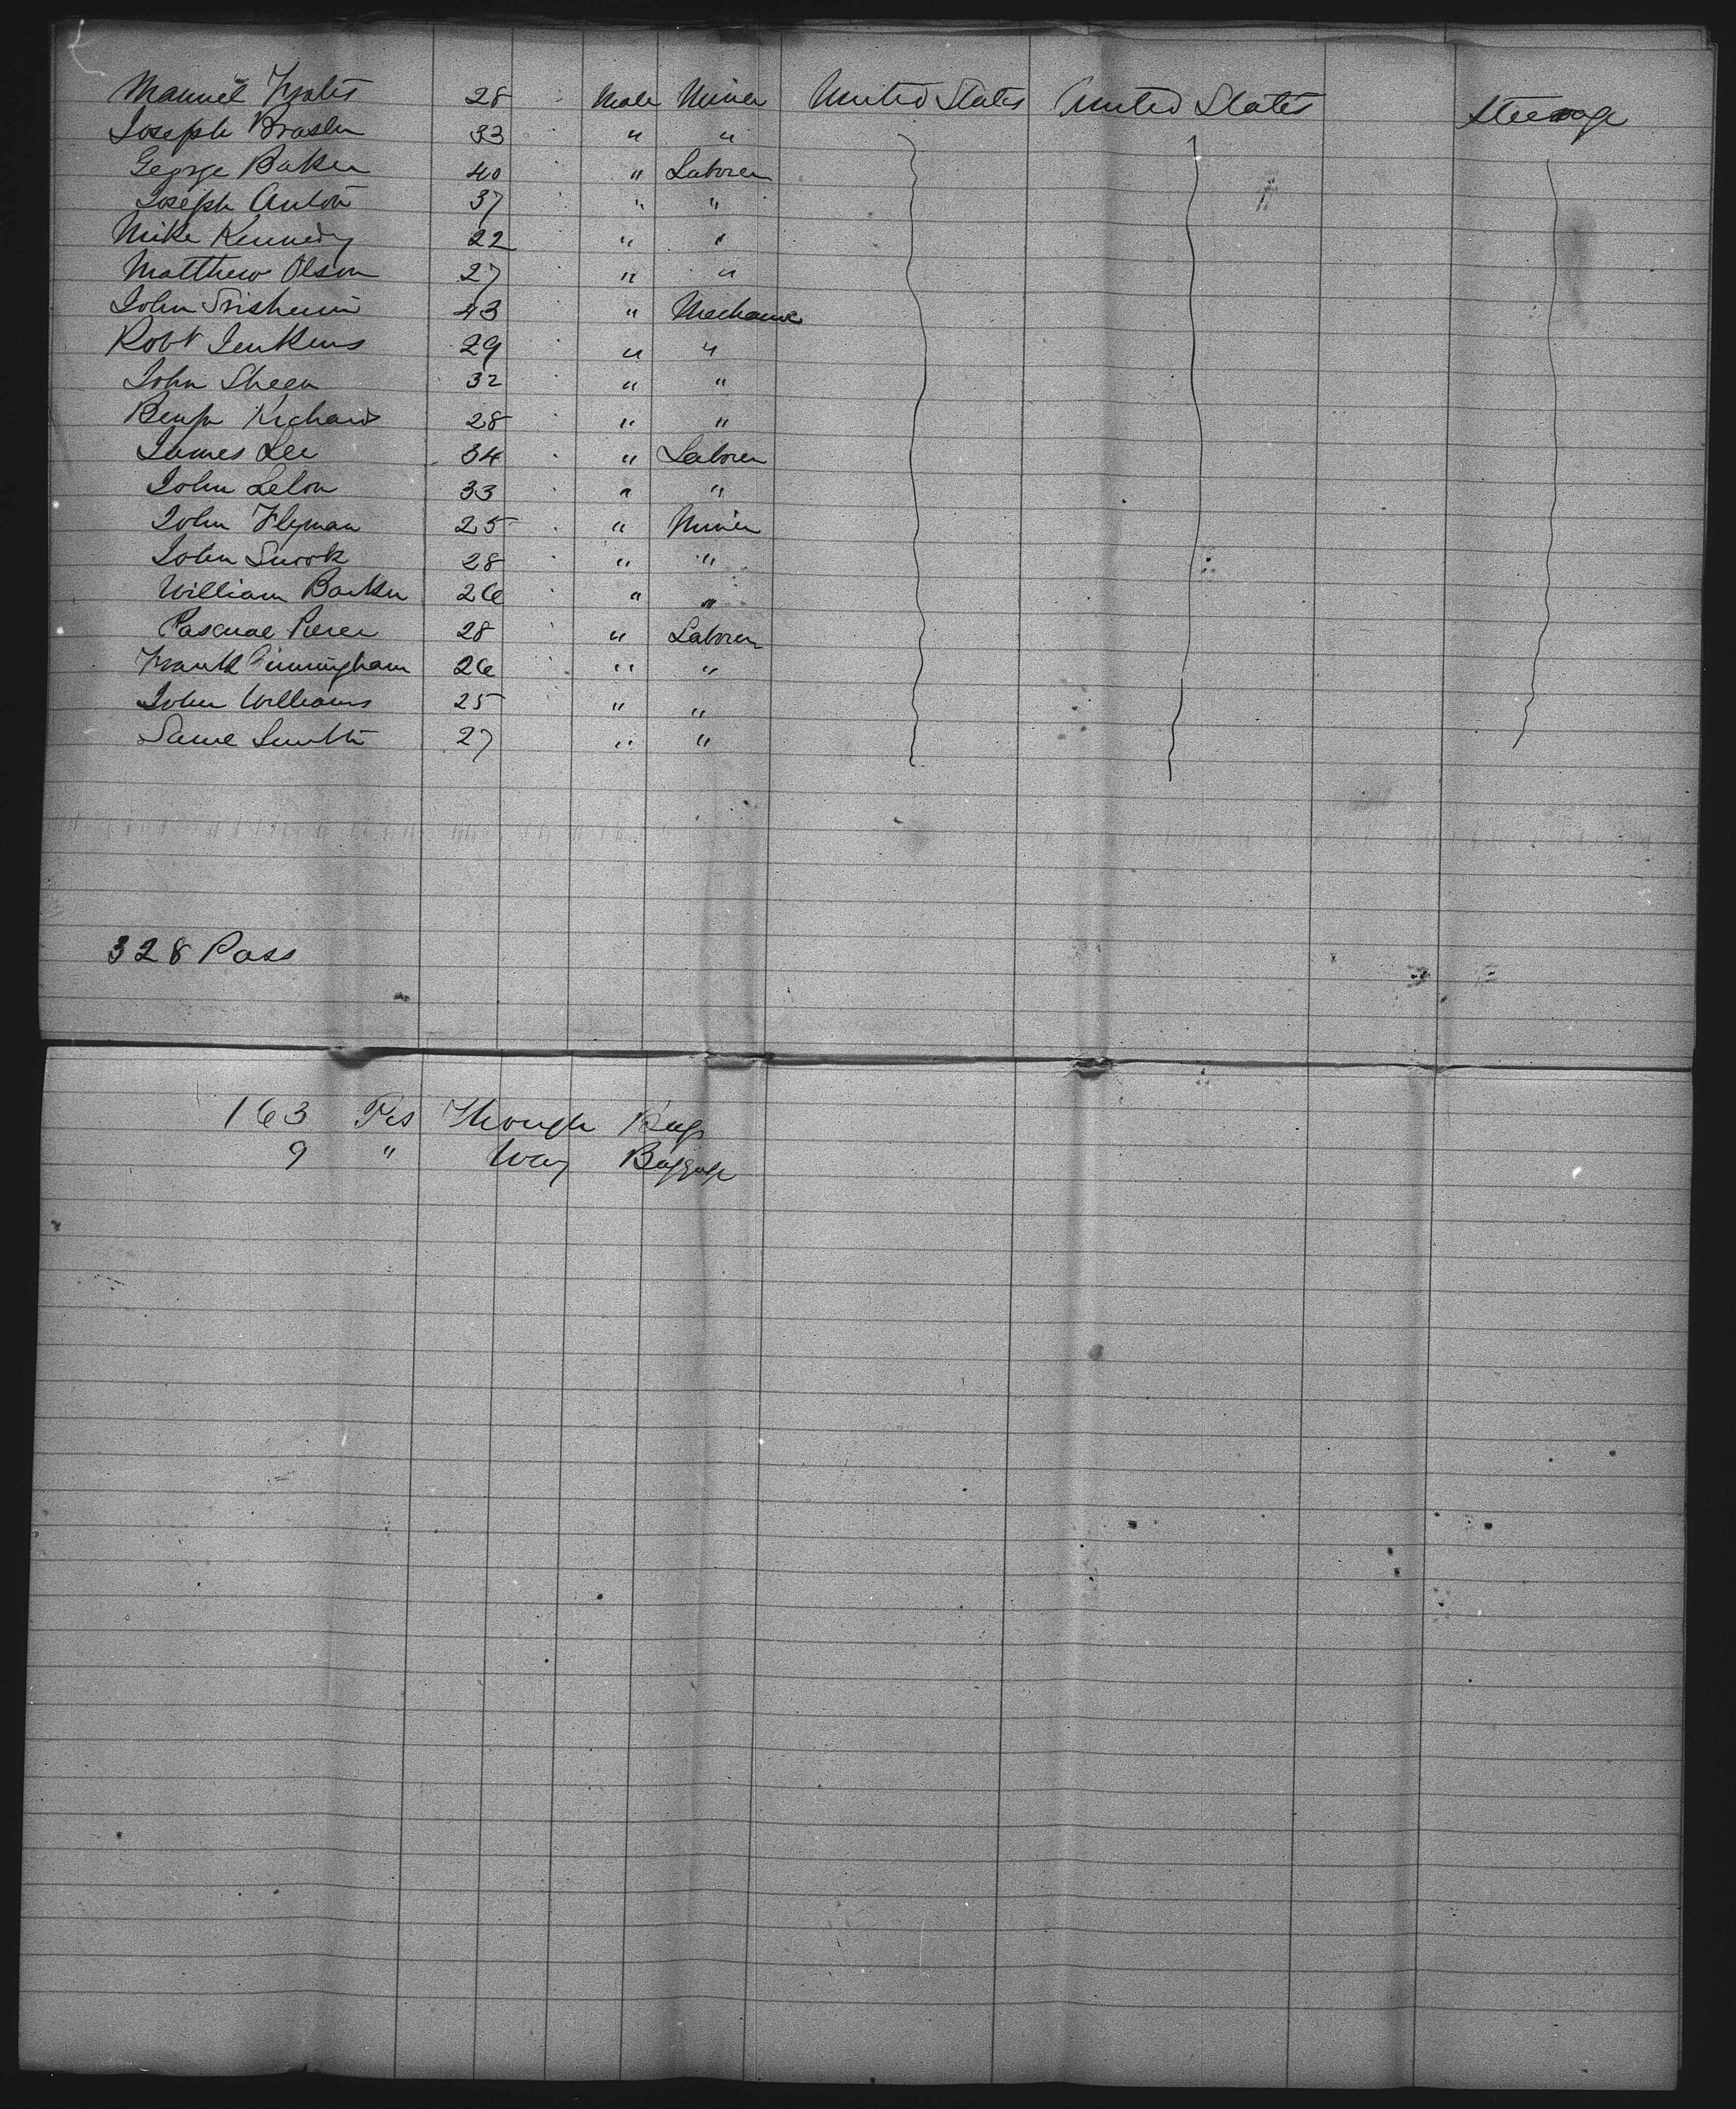 Manuel 28 Male Miner United States United States Steerage
Joseph 33 " "
George Baker 40 " Laborer
Joseph Anton 37 " "
Mike Kennedy 22 " "
Matthew Olson 27 " "
John 43 " Mechanic
Robt Jenkins 29 " "
John Sheen 32 " "
Benjn Richards 28 " "
James Lee 34 " Laborer
John 33 " "
John 25 " Miner
John 28 " "
William Barker 26 " "
Pascual 28 " Laborer
Frank 26 " "
John Williams 25 " "
Smith 27 " "
328 Pass
163 Pcs Through Bag
9 " Way Baggage